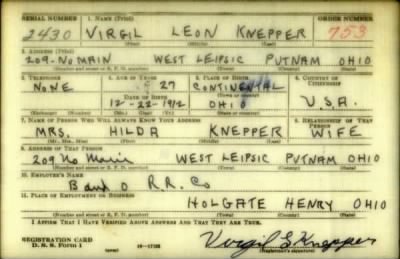 SERIAL NUMBER 1. NAME (Print) ORDER NUMBER
2430 VIRGIL LEON KNEPPER 753
(First) (Middle) (Last)
2. ADDRESS (Print)
209-NO MAIN WEST LEIPSIC PUTNAM OHIO
(Number and street or R. F. D. number) (Town) (County) (State)
3. TELEPHONE 4. AGE IN YEARS 5. PLACE OF BIRTH 6. COUNTRY OF CITIZENSHIP
NONE 27 CONTINENTAL
DATE OF BIRTH
12-22-1912 OHIO U.S.A.
7. NAME OF PERSON WHO WILL ALWAYS KNOW YOUR ADDRESS 8. RELATIONSHIP OF THAT PERSON
MRS. HILDA KNEPPER WIFE
9. ADDRESS OF THAT PERSON
209 No Main WEST LEIPSIC PUTNAM OHIO
(Number and street or R. F. D. number) (Town) (County) (State)
10. EMPLOYER'S NAME
B and O R.R. Co
11. PLACE OF EMPLOYMENT OR BUSINESS
HOLGATE HENRY OHIO
(Number and street or R. F. D. number) (Town) (County) (State)
I AFFIRM THAT I HAVE VERIFIED ABOVE ANSWERS AND THAT THEY ARE TRUE.
REGISTRATION CARD
D. S. S. FORM 1 Virgil L Knepper
(Registrant's signature)